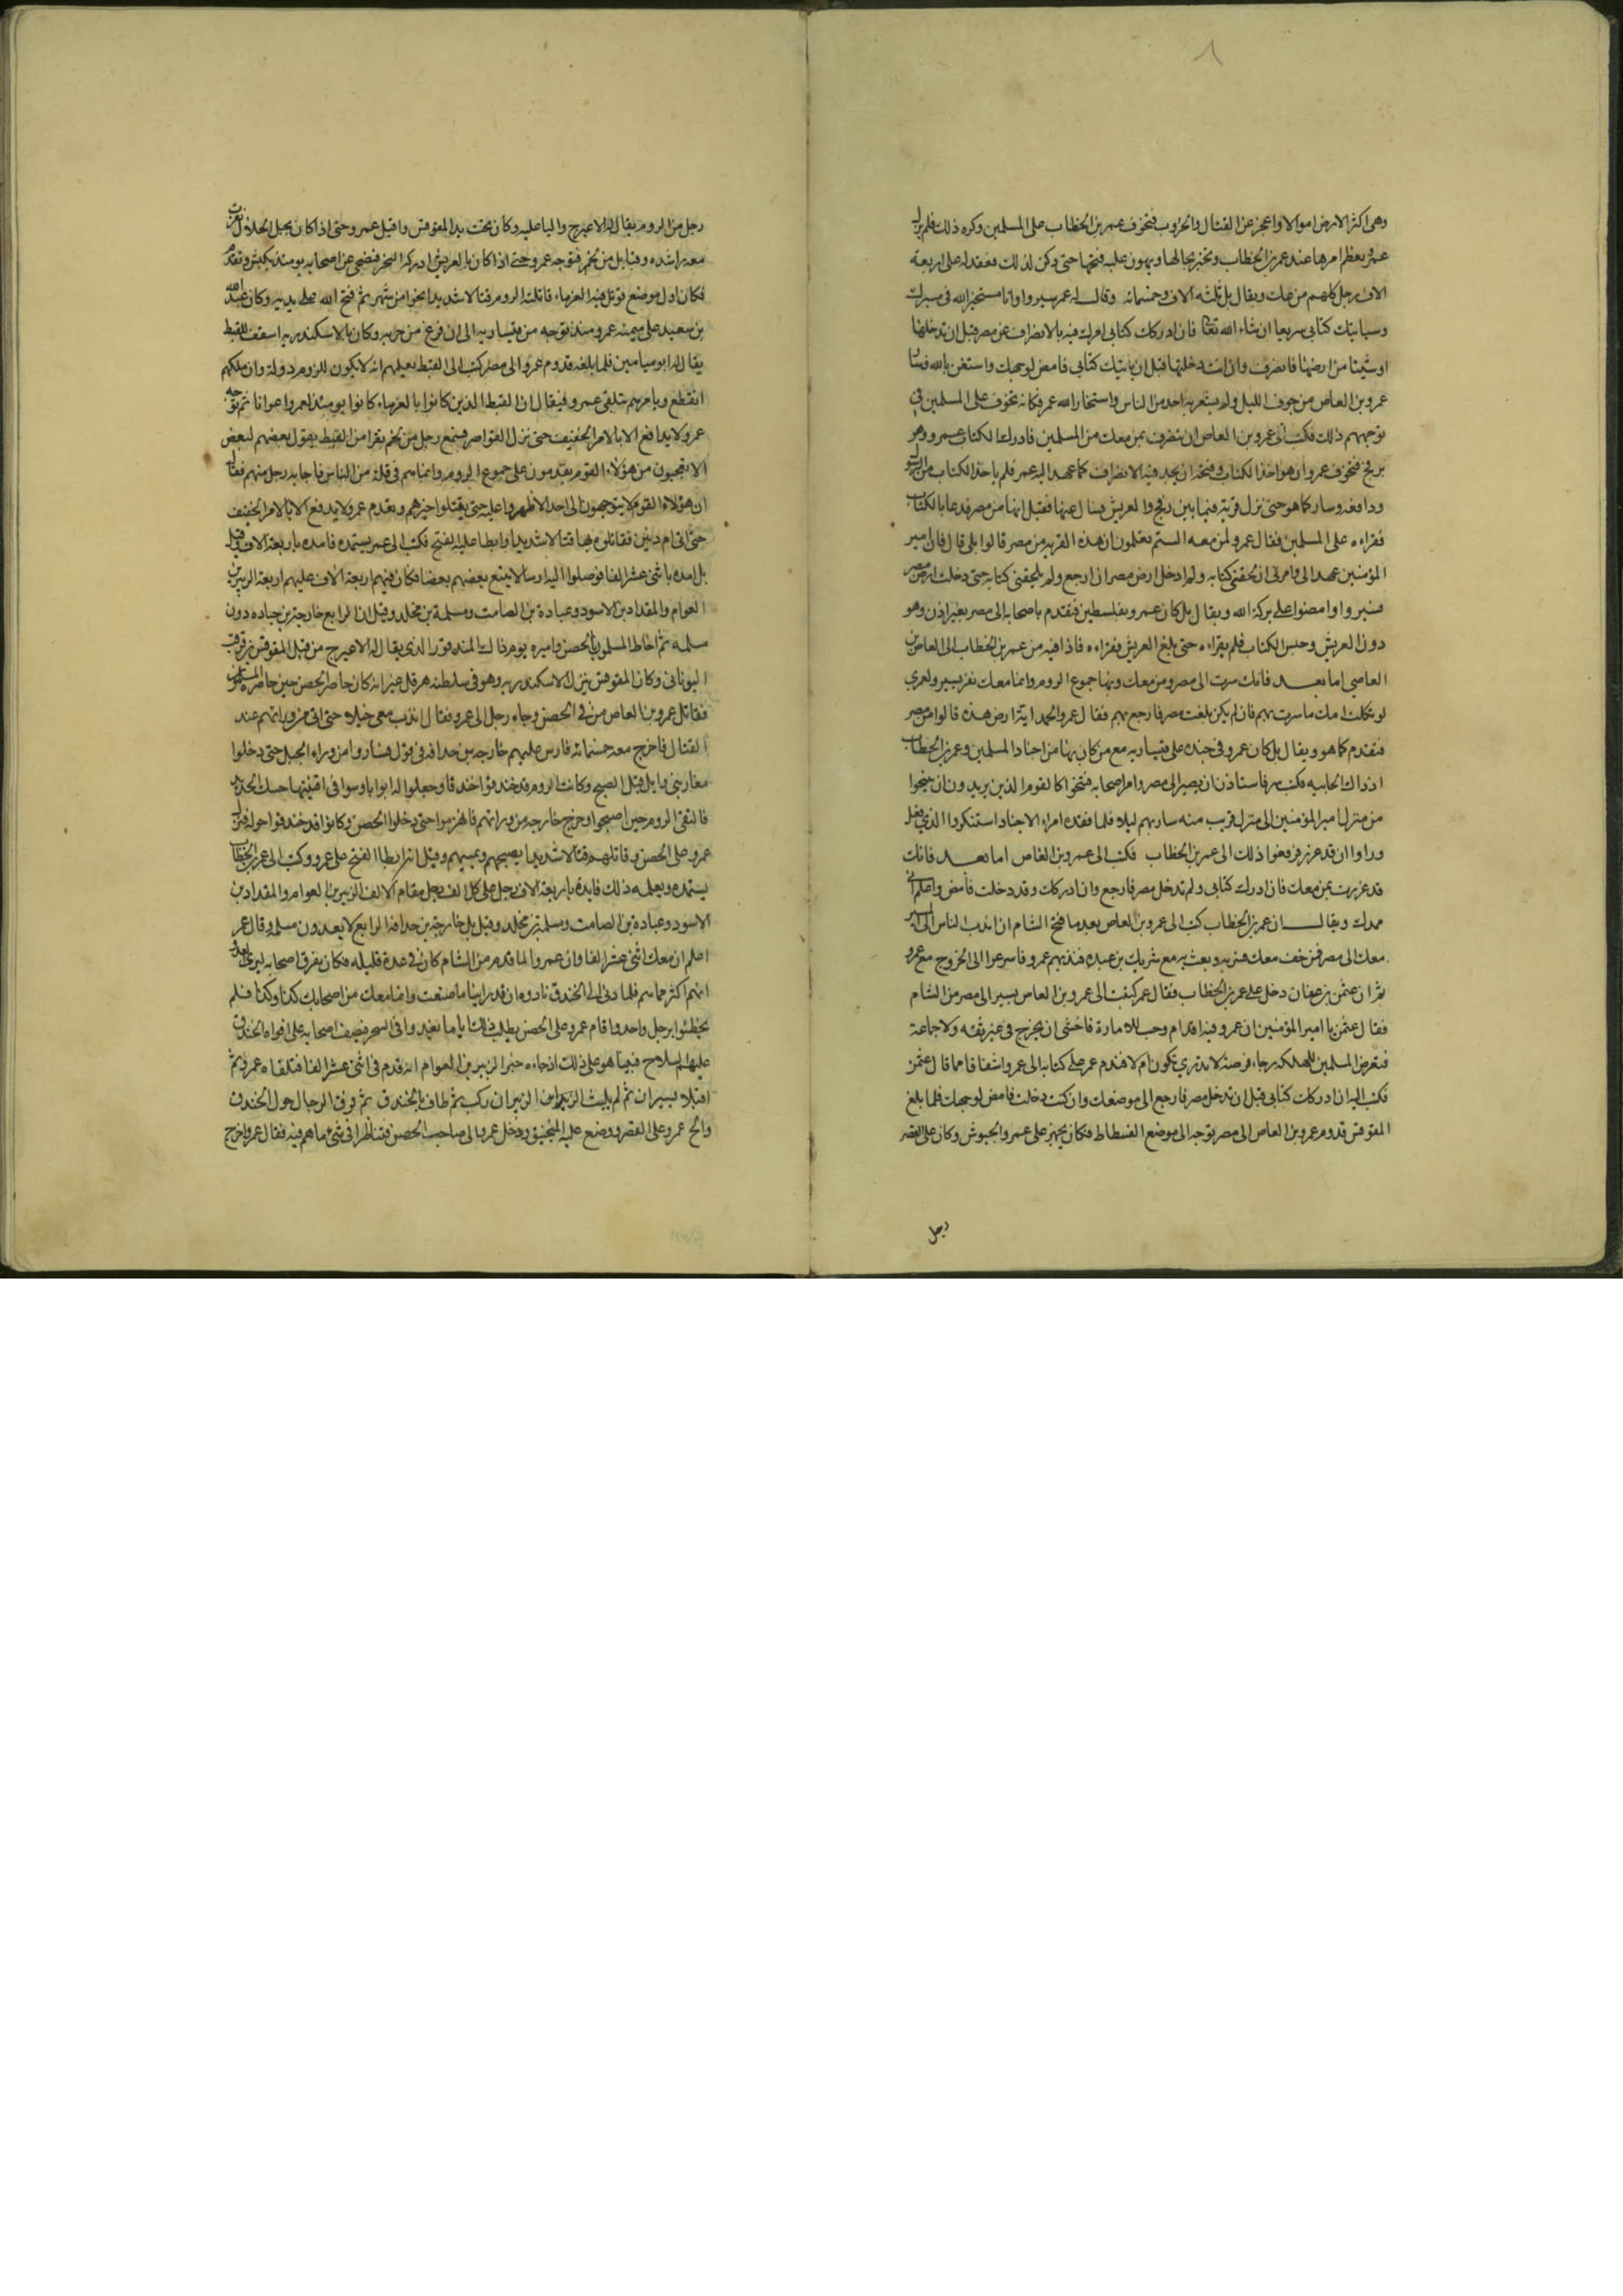 ٨
وهى اكثر الارض اموالا واعجز عن القتال والحروب فتخوف عمر بن الخطاب على المسلمين وكره ذلك فلم يزل
عمرو يعظم امرها عند عمر بن الخطاب ويخبره بحالها ويهون عليه فتحها حتى ركن لذلك فعقد له على اربعة
الاف رجل كلهم من عك ويقال بل ثلثه الاف وخمسمائه وقال له عمر سيروا وانا مستخير الله فى مسيرك
وسياتيك كتابى سريعا ان شاء الله تعالى فان ادركك كتابى امرك فيه بالانصراف عن مصر قبل ان تدخلها
او شيئا من ارضها فانصرف وان انت دخلتها قبل ان ياتيك كتابى فامض لوجهك واستعن بالله فسار
عمرو بن العاص من جوف الليل ولم يشعر به احد من الناس واستخار الله عمر فكانه تخوف على المسلمين فى
توجههم ذلك فكتب الى عمرو بن العاص ان ينصرف بمن معك من المسلمين فادرك الكتاب عمرو وهو
برفح فتخوف عمرو ان هو اخذ الكتاب وفتحه ان يجد فيه الانصراف كما عهد اليه عمر فلم ياخذ الكتاب من الرسول
ودافعه وسار كما هو حتى نزل قرية فيما بين رفح والعريش فسال عنها فقيل انها من مصر فدعا بالكتاب
فقراءه على المسلمين فقال عمرو لمن معه الستم تعلمون ان هذه القريه من مصر قالوا بلى قال فان امير
المؤمنين عهد الى وامرنى ان لحقنى كتابه ولم ادخل ارض مصر ان ارجع ولم يلحقنى كتابه حتى دخلت ارض مصر
فسيروا وامضوا على بركة الله ويقال بل كان عمرو بفلسطين فتقدم باصحابه الى مصر بغير اذن وهو
دون العريش وحبس الكتاب فلم يقراءه حتى بلغ العريش فقراءه فاذا فيه من عمر بن الخطاب الى العاص بن
العاصى اما بعد فانك سرت الى مصر ومن معك وبها جموع الروم وانما معك نفر يسير ولعمرى
لو ثكلت امك ما سرت بهم فان لم يكن بلغت مصر فارجع بهم فقال عمرو الحمد لله اية ارض هذه قالوا من مصر
فتقدم كما هو ويقال بل كان عمرو فى جنده على قيساريه مع من كان بها من اجناد المسلمين وعمر بن الخطاب
اذ ذاك بالجابيه فكتب سرا فاستاذن ان يصير الى مصر وامر اصحابه فتنحوا كالقوم الذين يريدون ان يتنحوا
من منزل الى منزل قريب منه سار بهم ليلا فلما فقده امراء الاجناد استنكروا الذى فعل
وراوا ان قد غرر فرفعوا ذلك الى عمر بن الخطاب فكتب الى عمرو بن العاص اما بعد فانك
قد غررت بمن معك فان ادرك كتابى ولم تدخل مصر فارجع وان ادركك وقد دخلت فامض واعلم انى
ممدك ويقال ان عمر بن الخطاب كتب الى عمرو بن العاص بعد ما فتح الشام ان اندب الناس الى المسير
معك الى مصر فمن خف معك فسر به وبعث به مع شريك بن عبده فندبهم عمرو فاسرعوا الى الخروج مع عمرو
ثم ان عثمن بن عفان دخل على عمر بن الخطاب فقال عمر كتبت الى عمرو بن العاص يسير الى مصر من الشام
فقال عثمن يا امير المؤمنين ان عمرو فيه اقدام وحب للامارة فاخشى ان يخرج فى غير ثقه ولا جماعة
فيعرض المسلمين للهلكه رجاء فرصة لا يدرى تكون ام لا فندم عمر على كتابه الى عمرو اشفاقا مما قال عثمن
فكتب اليه ان ادركك كتابى قبل ان تدخل مصر فارجع الى موضعك وان كنت دخلت فامض لوجهك فلما بلغ
المقوقس قدوم عمرو بن العاص الى مصر توجه الى موضع الفسطاط فكان يجهز على عمرو الجيوش وكان على القصر
رجل
رجل من الروم يقال له الاعيرج واليا عليه وكان تحت يد المقوقس واقبل عمرو حتى اذا كان بجبل الحلال نفرت
معه راشده وقبايل من لخم فتوجه عمرو حتى اذا كان بالعريش ادركه النحر فضحى عن اصحابه يومئذ بكبش وتقدم
فكان اول موضع قوتل فيه الفرماء قاتلته الروم قتالا شديدا نحوا من شهر ثم فتح الله على يديه وكان عبد الله
بن سعيد على ميمنه عمرو منذ توجه من قيساريه الى ان فرغ من حربه وكان بالاسكندريه اسقف للقبط
يقال له ابو ميامين فلما بلغه قدوم عمرو الى مصر كتب الى القبط يعلمهم انه لا يكون للروم دولة وان ملكهم
انقطع ويامرهم بتلقى عمرو فيقال ان القبط الذين كانوا بالفرماء كانوا يومئذ لعمرو اعوانا ثم توجه
عمرو لا يدافع الا بالامر الخفيف حتى نزل القواصر فسمع رجل من لخم نفرا من القبط يقول بعضهم لبعض
الا تعجبون من هؤلاء القوم يقدمون على جموع الروم وانما هم فى قلة من الناس فاجابه رجل منهم فقال
ان هؤلاء القوم لا يتوجهون الى احد الا ظهروا عليه حتى يقتلوا خيرهم وتقدم عمرو لا يدفع الا بالامر الخفيف
حتى اتى ام دنين فقاتلوه بها قتالا شديدا وابطا عليه الفتح فكتب الى عمر يستمده فامده باربعة الاف وقيل
بل امده باثنى عشر الفا فوصلوا اليه ارسالا يتبع بعضهم بعضا فكان فيهم اربعة الاف عليهم اربعة الزبير بن
العوام والمقداد بن الاسود وعبادة بن الصامت ومسلمة بن مخلد وقيل ان الرابع خارجة بن حذافه دون
مسلمه ثم احاط المسلمون بالحصن واميره يومئذ المندقور الذى يقال له الاعيرج من قبل المقوقس بن قرقب
اليونانى وكان المقوقس ينزل الاسكندريه وهو فى سلطنة هرقل غير انه كان حاضر الحصن حين حاصره المسلمون
فقاتل عمرو بن العاص من فى الحصن وجاء رجل الى عمرو فقال اندب معى خيلا حتى اتى من ورائهم عند
القتال فاخرج معه خمسمائه فارس عليهم خارجه بن حذافه فى قول فساروا من وراء الجبل حتى دخلوا
مغار بنى وايل قبل الصبح وكانت الروم قد خندقوا خندقا وجعلوا له ابوابا وبثوا فى افنيتها حسك الحديد
فالتقى الروم حين اصبحوا وخرج خارجه من ورائهم فانهزموا حتى دخلوا الحصن وكانوا قد خندقوا حوله فنزل
عمرو على الحصن وقاتلهم قتالا شديدا يصبحهم ويمسيهم وقيل انه ابطا الفتح على عمرو وكتب الى عمر بن الخطاب
يستمده ويعلمه ذلك فامده باربعة الاف رجل على كل الف رجل مقام الالف الزبير بن العوام والمقداد بن
الاسود وعبادة بن الصامت ومسلمة بن مخلد وقيل بل خارجة بن حذافه الرابع لا يعدون مسلمه وقال عمر
اعلم ان معك اثنى عشر الفا وان عمرو لما قدم من الشام كان فى عدة قليله فكان يفرق اصحابه ليرى العدو
انهم اكثر مما هم فلما دنى الى الخندق نادوه ان قد راينا ما صنعت وانما معك من اصحابك كذا وكذا فلم
يخطئوا برجل واحد واقام عمرو على الحصن يطلب ذلك اياما يغدوا فى السحر فيصف اصحابه على افواه الخندق
عليهم السلاح فبينا هو على ذلك اذ جاءه خبر الزبير بن العوام انه قدم فى اثنى عشر الفا فتلقاه عمرو ثم
اقبلا يسيران ثم لم يلبث الزبير ان ركب ثم طاف بالخندق ثم فرق الرجال حول الخندق
والح عمرو على القصر ووضع عليه المنجنيق ودخل عمرو الى صاحب الحصن فتناظرا فى شىء مما هم فيه فقال عمرو اخرج